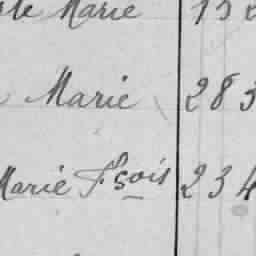 Marie 132
Marie 283
Marie Fçois 234